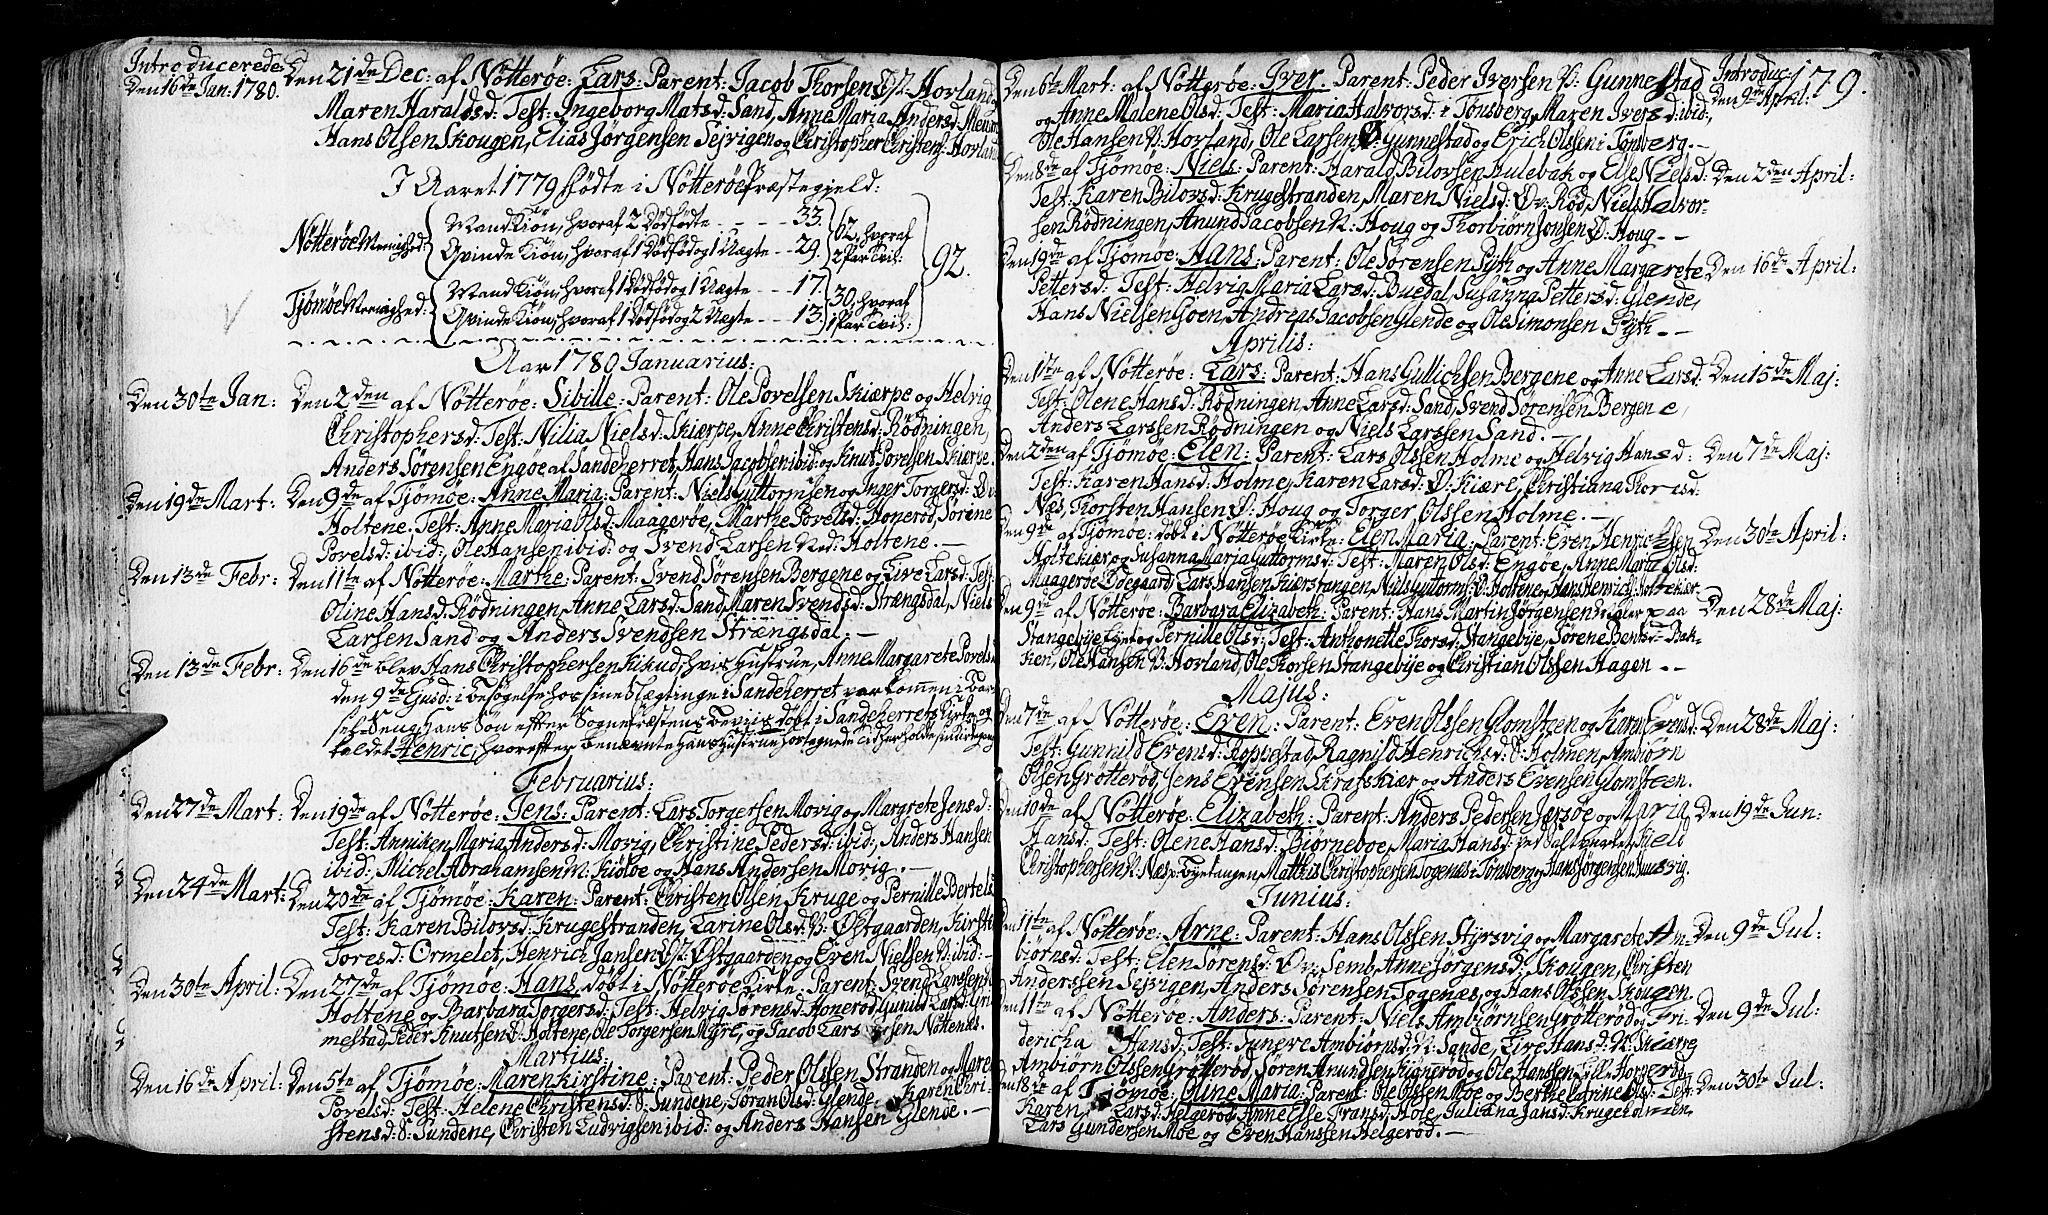 Introducerede:
Den 16de Jan: 1780.
Den 21de Dec: af Nötteröe: Lars: Parent: Jacob Thorsen Ø: Horland og
Maren Haraldsd: Test: Ingeborg Matsd: Sand, Anne Maria Andersd: Meum
Hans Olsen Skougen, Elias Jørgensen Sejvigen og Christopher Christens: Horland
I Aaret 1779 födte i Nötteröe Præstegield:
Nötteröe Menighed:
Mand Kiön, hvoraf 2 Dödfödte - - - - 33.
Qvinde Kiön, hvoraf 1 Dödföd og 1 Uægte - - 29.
62, hvoraf
2 Par Tvil:
92.
Tjömöe Menighed:
Mand Kiön, hvoraf 1 Dödföd og 1 Uægte - - - 17.
Qvinde Kiön, hvoraf 1 Dödföd og 2 Uægte - - - 13.
30, hvoraf
1 Par Tvil:
Aar 1780 Januarius:
Den 30te Jan: Den 2den af Nötteröe: Sibille: Parent: Ole Povelsen Skierpe og Helvig
Christophersd: Test: Nilia Nielsd: Skierpe, Anne Christensd: Rödningen,
Anders Sörensen Engöe af Sandeherret, Hans Jacobsen ibid: og Knut Povelsen Skierpe.
Den 19de Mart: Den 9de af Tjömöe: Anne Maria: Parent: Niels Guttormsen og Inger Torgersd: Øv:
Holtene. Test: Anne Maria Olsd: Maageröe, Marthe Povelsd: Honeröd, Sörene
Povelsd: ibid: Ole Hansen ibid: og Svend Larsen Ned: Holtene. -
Den 13de Febr: Den 11te af Nötteröe: Marthe: Parent: Svend Sörensen Bergene og Live Larsd: Test:
Oline Hansd: Rödningen, Anne Larsd: Sand, Maren Svendsd: Strængsdal, Niels
Larsen Sand og Anders Svendsen Strængsdal. -
Den 13de Febr: Den 16de blev Hans Christophersen Kikud, hvis Hustrue, Anne Margarete Povelsd:
den 9de Ejusd: i Besögelse hos sine Slægtinge i Sandeherret var kommen i Bar
sel-Seng hans Sön efter Sognepræstens Beviis döbt i Sandeherrets Kirke og
kaldet Henric, hvorefter benævnte Hans Hustrue
Februarius:
Den 27de Mart: Den 19de af Nötteröe: Jens: Parent: Lars Torgersen Movig og Margrete Jensd:
Test: Anniken Maria Andersd: Movig, Christine Pedersd: ibid: Anders Hansen
ibid: Michel Abrahamsen N: Kiölöe og Hans Andersen Movig. -
Den 24de Mart: Den 20de af Tjömöe: Karen: Parent: Christen Olsen Kruge og Pernille Bertels
Test: Karen Bilovsd: Krugestranden, Carine Olsd: N: Østgaarden, Kirsti
Toresd: Ormelet, Henrich Jansen N: Østgaarden og Even Nielsen N: ibid: -
Den 30te April: Den 27de af Tjömöe: Hans, döbt i Nötteröe Kirke: Parent: Svend Larssen N:
Holtene og Barbara Torgersd: Test: Helvig Sörensd: Honeröd, Gunild Larsd: Gri
mestad, Peder Knutsen Ø: Holtene, Ole Torgersen Myre, og Jacob Larssen Nöttenæs.
Martius:
Den 16de April: Den 5te af Tjömöe: Maren Kirstine: Parent: Peder Olssen Stranden og Mare
Povelsd: Test: Helene Christensd: S: Sundene, Töran Olsd: Glende, Karen Chri
stensd: S: Sundene, Christen Ludvigsen ibid: og Anders Hansen Glende. -
Introduc: 179.
Den 6te Mart: af Nötteröe: Iver: Parent: Peder Iversen N: Gunnestad Den 9de April:
og Anne Malene Olsd: Test: Maria Halvorsd: i Tønsberg, Maren Iversd: ibid:,
Ole Hansen N: Horland, Ole Larsen Ø: Gunnestad og Erich Olssen i Tønsberg. -
Den 8de af Tjömöe: Niels: Parent: Harald Bilovsen Bulebak og Else Nielsd: Den 2den April:
Test: Karen Bilovsd: Krugestranden, Maren Nielsd: Øv: Röd, Niels Halvor-
sen Rödningen, Anund Jacobsen N: Houg og Thorbiørn Jonsen Ø: Houg - -
Den 19de af Tjömöe: Hans: Parent: Ole Sörensen Pyth og Anne Margarete Den 16de April:
Pettersd: Test: Helvig Maria Larsd: Buedal, Susanna Pettersd: Glende,
Hans Nielsen Goen, Andreas Jacobsen Glende og Ole Simonsen Pyth - -
Aprilis:
Den 1te af Nötteröe: Lars: Parent: Hans Gullichsen Bergene og Anne Larsd: Den 15de Maj:
Test: Olene Hansd: Rödningen, Anne Larsd: Sand, Svend Sörensen Bergene,
Anders Larssen Rödningen og Niels Larssen Sand. -
Den 2den af Tjömöe: Elen: Parent: Lars Olssen Holme og Helvig Hansd: Den 7de Maj:
Test: Karen Hansd: Holme, Karen Larsd: Ø: Kiære, Christiana Thoresd:
Næs, Thorsten Hansen Ø: Houg og Torger Olssen Holme. -
Den 9de af Tjömöe: döbt i Nötteröe Kirke: Elen Maria: Parent: Even Henrichsen Den 30te April:
Holtekiær og Susanna Maria Guttormsd: Test: Maren Olsd: Engöe, Anne Maria Olsd:
Maageröe Ödegaard, Lars Hansen Kierstangen, Niels Guttorms: Ø: Holtene, Hans Henrichs: Holtekiær
Den 9de af Nötteröe: Barbara Elizabeth: Parent: Hans Martin Jörgensen Den 28de Maj:
Stangebye Ejet og Pernille Olsd: Test: Anthonette Thorsd: Stangebye, Sörene Bentsd: Bak-
ken, Ole Hansen N: Horland, Ole Thorsen Stangebye og Christian Olssen Hagen - -
Majus:
Den 7de af Nötteröe: Even: Parent: Even Olssen Glomsteen og Karen Evensd: Den 28de Maj:
Test: Gunnild Evensd: Roppestad, Ragnild Henrichsd: Ø: Holmen, Ambiörn
Olsen Grötteröd, Jens Evensen Skrafskiær og Anders Evensen Glomsteen.
Den 10de af Nötteröe: Elizabeth: Parent: Anders Pedersen Jærsöe og Maria Den 19de Jun:
Hansd: Test: Olene Hansd: Biörneboe, Maria Hansd: ved Saltværket, Kield
Christophersen N: Næs, Matthis Christophersen Togenæs i Tönsberg og Hans Jörgensen Buusvig.
Junius:
Den 11te af Nötteröe: Arne: Parent: Hans Olssen Styrsvig og Margarete Am- Den 9de Jul:
biörnsd: Test: Elen Sörensd: Øv: Semb, Anne Jörgensd: Skougen, Christen
Anderssen Sejvigen, Anders Sörensen Togenæs, og Hans Olssen Skougen
Den 11te af Nötteröe: Anders: Parent: Niels Ambiörnsen Grötteröd og Fri- Den 9de Jul:
dericha Hansd: Test: Sungve Ambiörnsd: N: Sande, Live Hansd: N: Skierre
Ambiörn Olssen Grötteröd, Sören Anundsen Kigneröd og Ole Hanssen Lill: Horgeröd
Den 18de af Tjömöe: Oline Maria: Parent: Ole Olssen Moe og Berthe Catrine Olsd: Test: Den 30te Jul:
Karen Larsd: Helgeröd, Anne Else Fransd: Hole, Juliana Jansd: Krugeholmen,
Lars Gundersen Moe og Even Hanssen Helgeröd. -